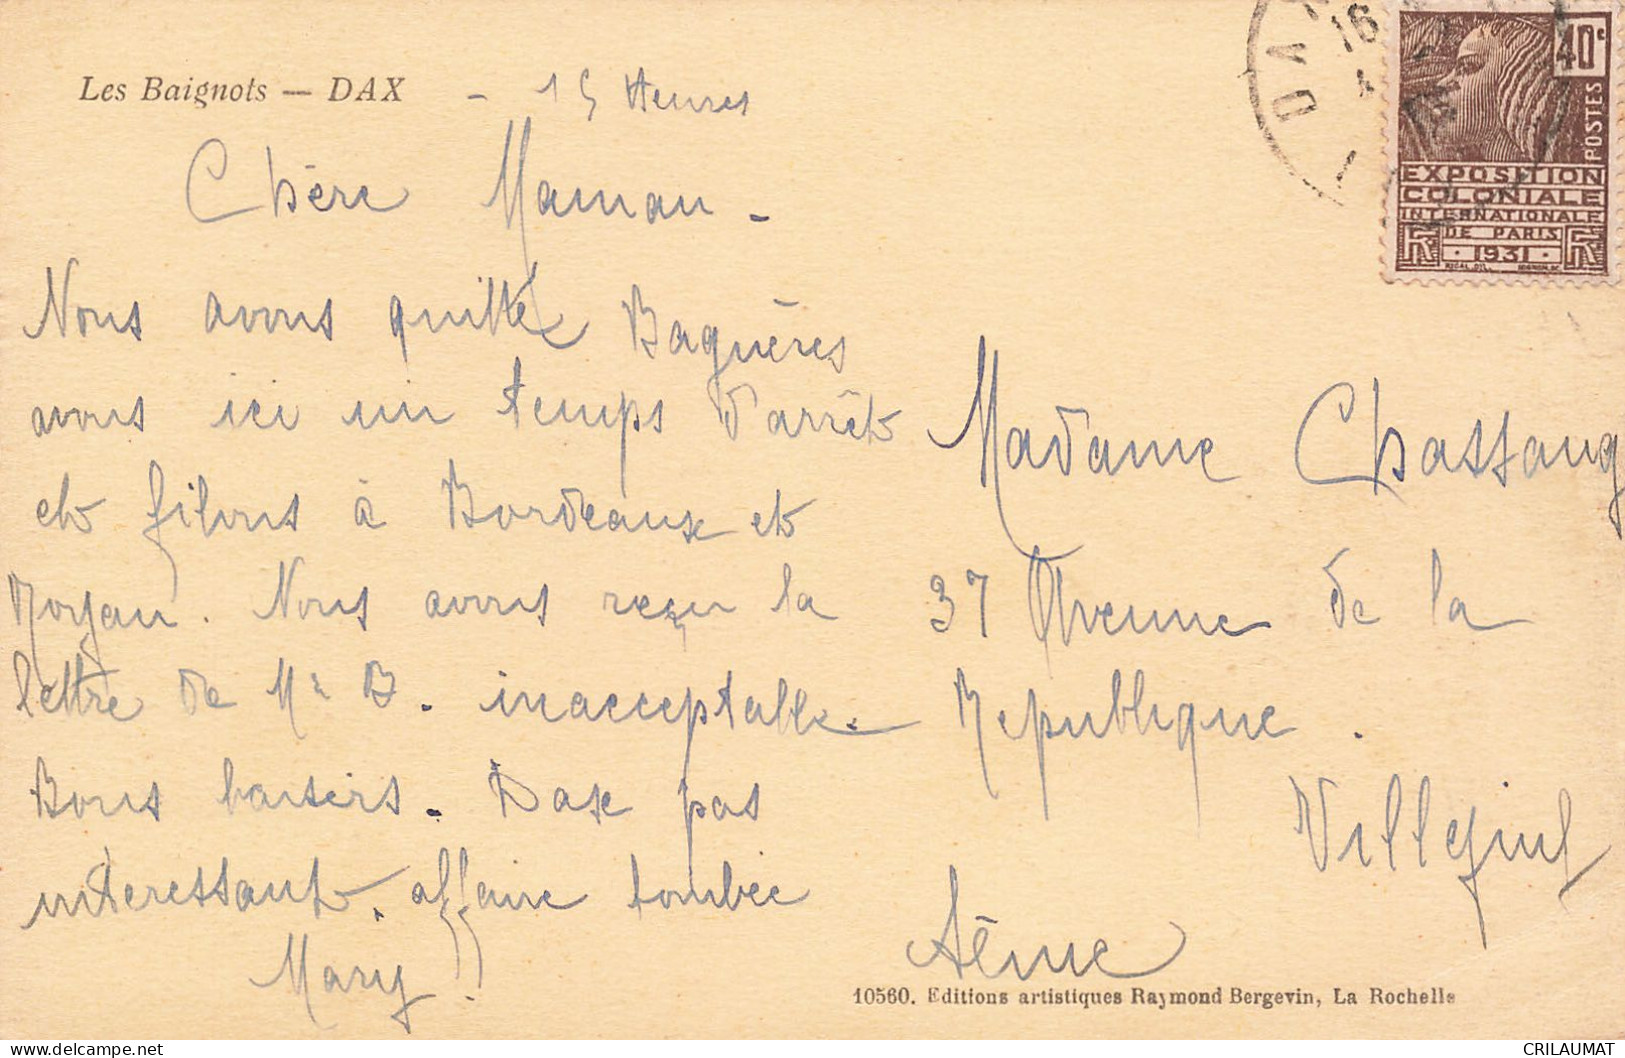 Les Baignots — DAX - 15 Heures
Chère Maman -
Nous avons quitté Bagnères
avons ici un temps d'arrêt
et filons à Bordeaux et
Royan. Nous avons reçu la
lettre de Mr B. inacceptable.
Bons baisers. Dax pas
interessant. affaire tombée
Mary !!
DAX
16
40c
POSTES
EXPOSITION
COLONIALE
INTERNATIONALE
DE PARIS
1931
RF RF
Madame Chassang
37 Avenue de la
Republique.
Villejuif
Seine
10560. Editions artistiques Raymond Bergevin, La Rochelle
delcampe.net
CRILAUMAT